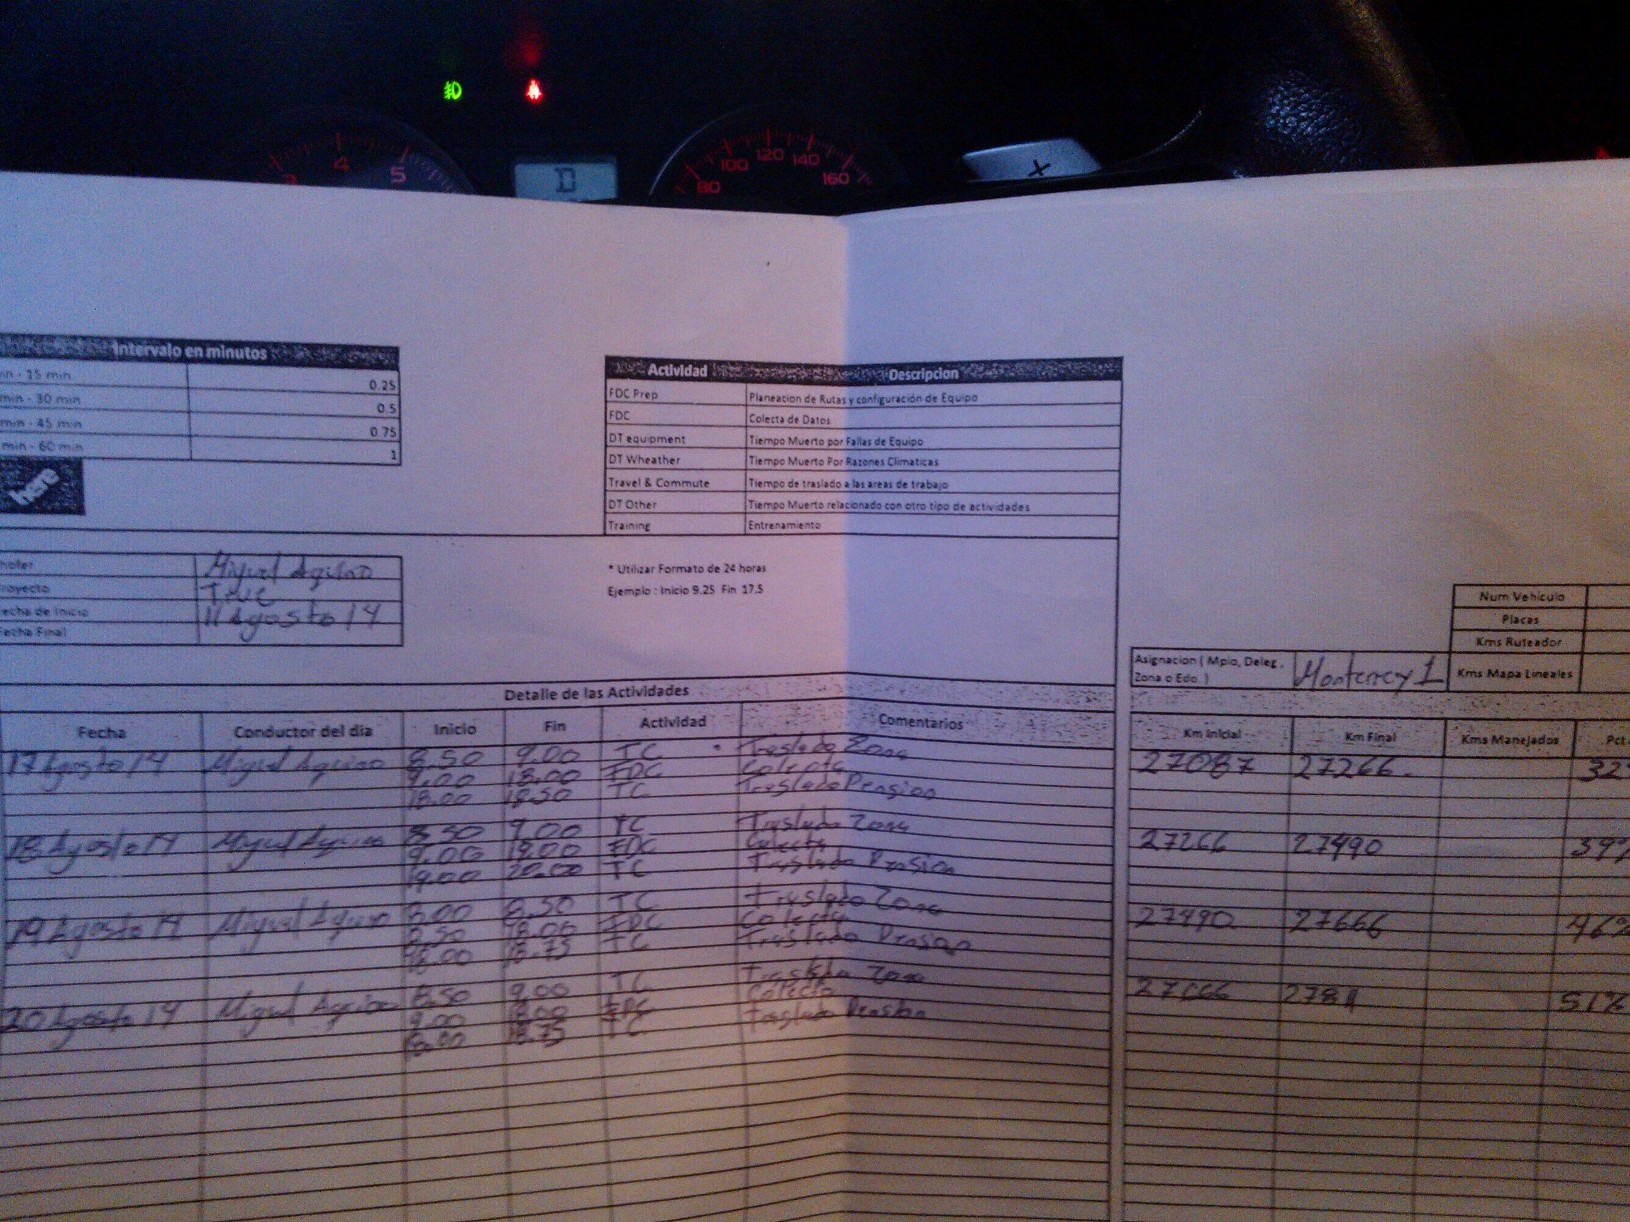 4 5
D
80 100 120 140 160
Intervalo en minutos
- 15 min. 0.25
min - 30 min 0.5
min - 45 min 0.75
min - 60 min 1
here
Actividad Descripcion
FDC Prep Planeacion de Rutas y configuración de Equipo
FDC Colecta de Datos
DT equipment Tiempo Muerto por Fallas de Equipo
DT Wheather Tiempo Muerto Por Razones Climaticas
Travel & Commute Tiempo de traslado a las areas de trabajo
DT Other Tiempo Muerto relacionado con otro tipo de actividades
Training Entrenamiento
hofer Miguel Aquino
royecto
echa de Inicio 11 Agosto 14
Fecha Final
* Utilizar Formato de 24 horas
Ejemplo : Inicio 9.25 Fin 17.5
Num Vehiculo
Placas
Kms Ruteador
Kms Mapa Lineales
Asignacion ( Mpio, Deleg,
Zona o Edo. ) Monterrey 1
Detalle de las Actividades
Fecha Conductor del día Inicio Fin Actividad Comentarios Km Inicial Km Final Kms Manejados Pct
17 Agosto 14 Miguel Aquino 8.50 9.00 TC Traslado Zona 27087 27266
9.00 18.00 FDC Colecta
18.00 18.50 TC Traslado Pension
18 Agosto 14 Miguel Aquino 8.50 9.00 TC Traslado Zona 27266 27490 39%
9.00 19.00 FDC Colecta
19.00 20.00 TC Traslado Pension
19 Agosto 14 Miguel Aquino 8.00 8.50 TC Traslado Zona 27490 27666 46%
8.50 18.00 FDC Colecta
18.00 18.75 TC Traslado Pension
20 Agosto 14 Miguel Aquino 8.50 9.00 TC Traslado Zona 27666 51%
9.00 18.00 FDC Colecta
18.00 18.75 TC Traslado Pension